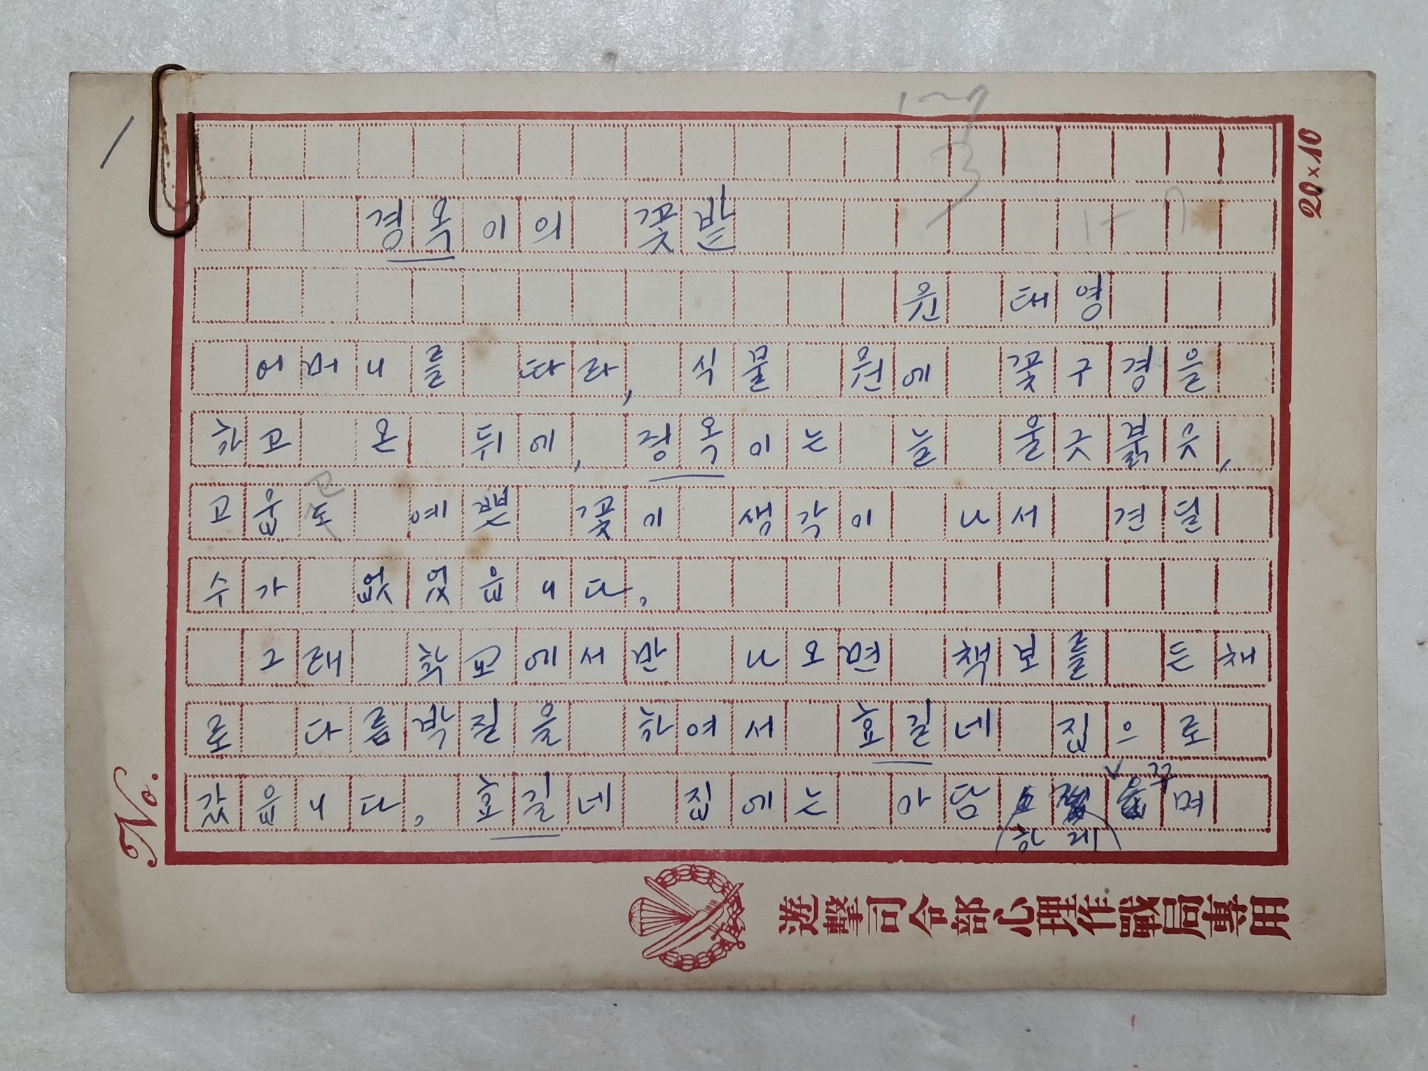 1~7
3
1-7
20×10
경옥이의 꽃밭
원 태영
어머니를 따라, 식물 원에 꽃구경을
하고 온 뒤에, 경옥이는 늘 울긋붉읏,
고읍도 예쁜 꽃이 생각이 나서 견딜
수가 없었읍니다.
그래 학교에서만 나오면 책보를 든채
로 다름박질을 하여서 효길네 집으로
갔읍니다. 효길네 집에는 아담 꾸며
하게
No.
遊撃司令部心理作戰局專用